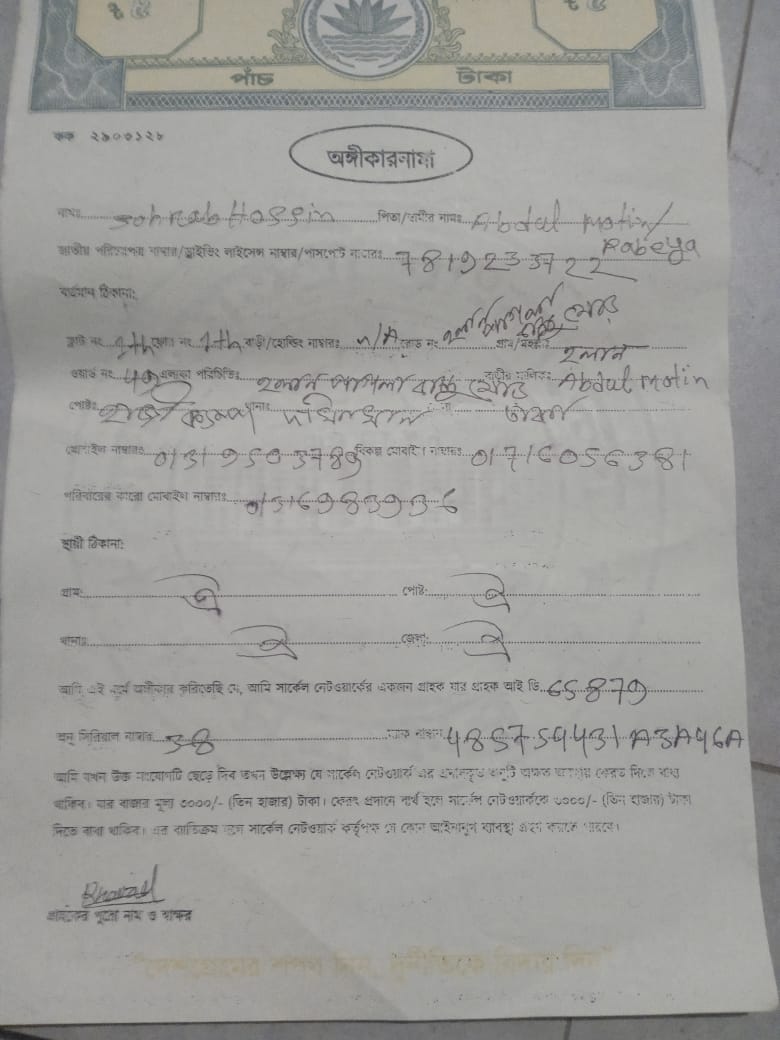 ৳ ৫ ৳ ৫
পাঁচ টাকা
কক ২৯০৩১২৮
অঙ্গীকারনামা
নামঃ Sohrab Hossin পিতা/স্বামীর নামঃ Abdul Motin/
Rabeya
জাতীয় পরিচয়পত্র নাম্বার/ড্রাইভিং লাইসেন্স নাম্বার/পাসপোর্ট নাম্বারঃ 7819233722
বর্তমান ঠিকানা:
ফ্লাট নং 7th ফ্লোর নং 7th বাড়ী/হোল্ডিং নাম্বারঃ N/A রোড নং গ্রাম/মহল্লাঃ হলান
ওয়ার্ড নং 49 এলাকা পরিচিতিঃ হলান মোড় বাড়ীর মালিকঃ Abdul Motin
পোষ্টঃ থানাঃ দক্ষিনখান ঢাকা
মোবাইল নাম্বারঃ বিকল্প মোবাইল নাম্বারঃ 01716056381
পরিবারের কারো মোবাইল নাম্বারঃ
স্থায়ী ঠিকানা:
গ্রাম: ঐ পোষ্ট: ঐ
থানাঃ ঐ জেলা: ঐ
আমি এই মর্মে অঙ্গীকার করিতেছি যে, আমি সার্কেল নেটওয়ার্কের একজন গ্রাহক যার গ্রাহক আই ডি 65879
অনু সিরিয়াল নাম্বার 38 ম্যাক নাম্বার 485754431A3A46A
আমি যখন উক্ত সংযোগটি ছেড়ে দিব তখন উল্লেখ্য যে সার্কেল নেটওয়ার্ক এর প্রদানকৃত অনুটি অক্ষত অবস্থায় ফেরত দিতে বাধ্য
থাকিব। যার বাজার মূল্য ৩০০০/- (তিন হাজার) টাকা। ফেরত প্রদানে ব্যর্থ হলে সার্কেল নেটওয়ার্ককে ৩০০০/- (তিন হাজার) টাকা
দিতে বাধ্য থাকিব। এর ব্যতিক্রম হলে সার্কেল নেটওয়ার্ক কর্তৃপক্ষ যে কোন আইনানুগ ব্যবস্থা গ্রহন করতে পারবে।
গ্রাহকের পুরো নাম ও স্বাক্ষর
"দেশপ্রেমের শপথ নিন, দুর্নীতিকে বিদায় দিন"